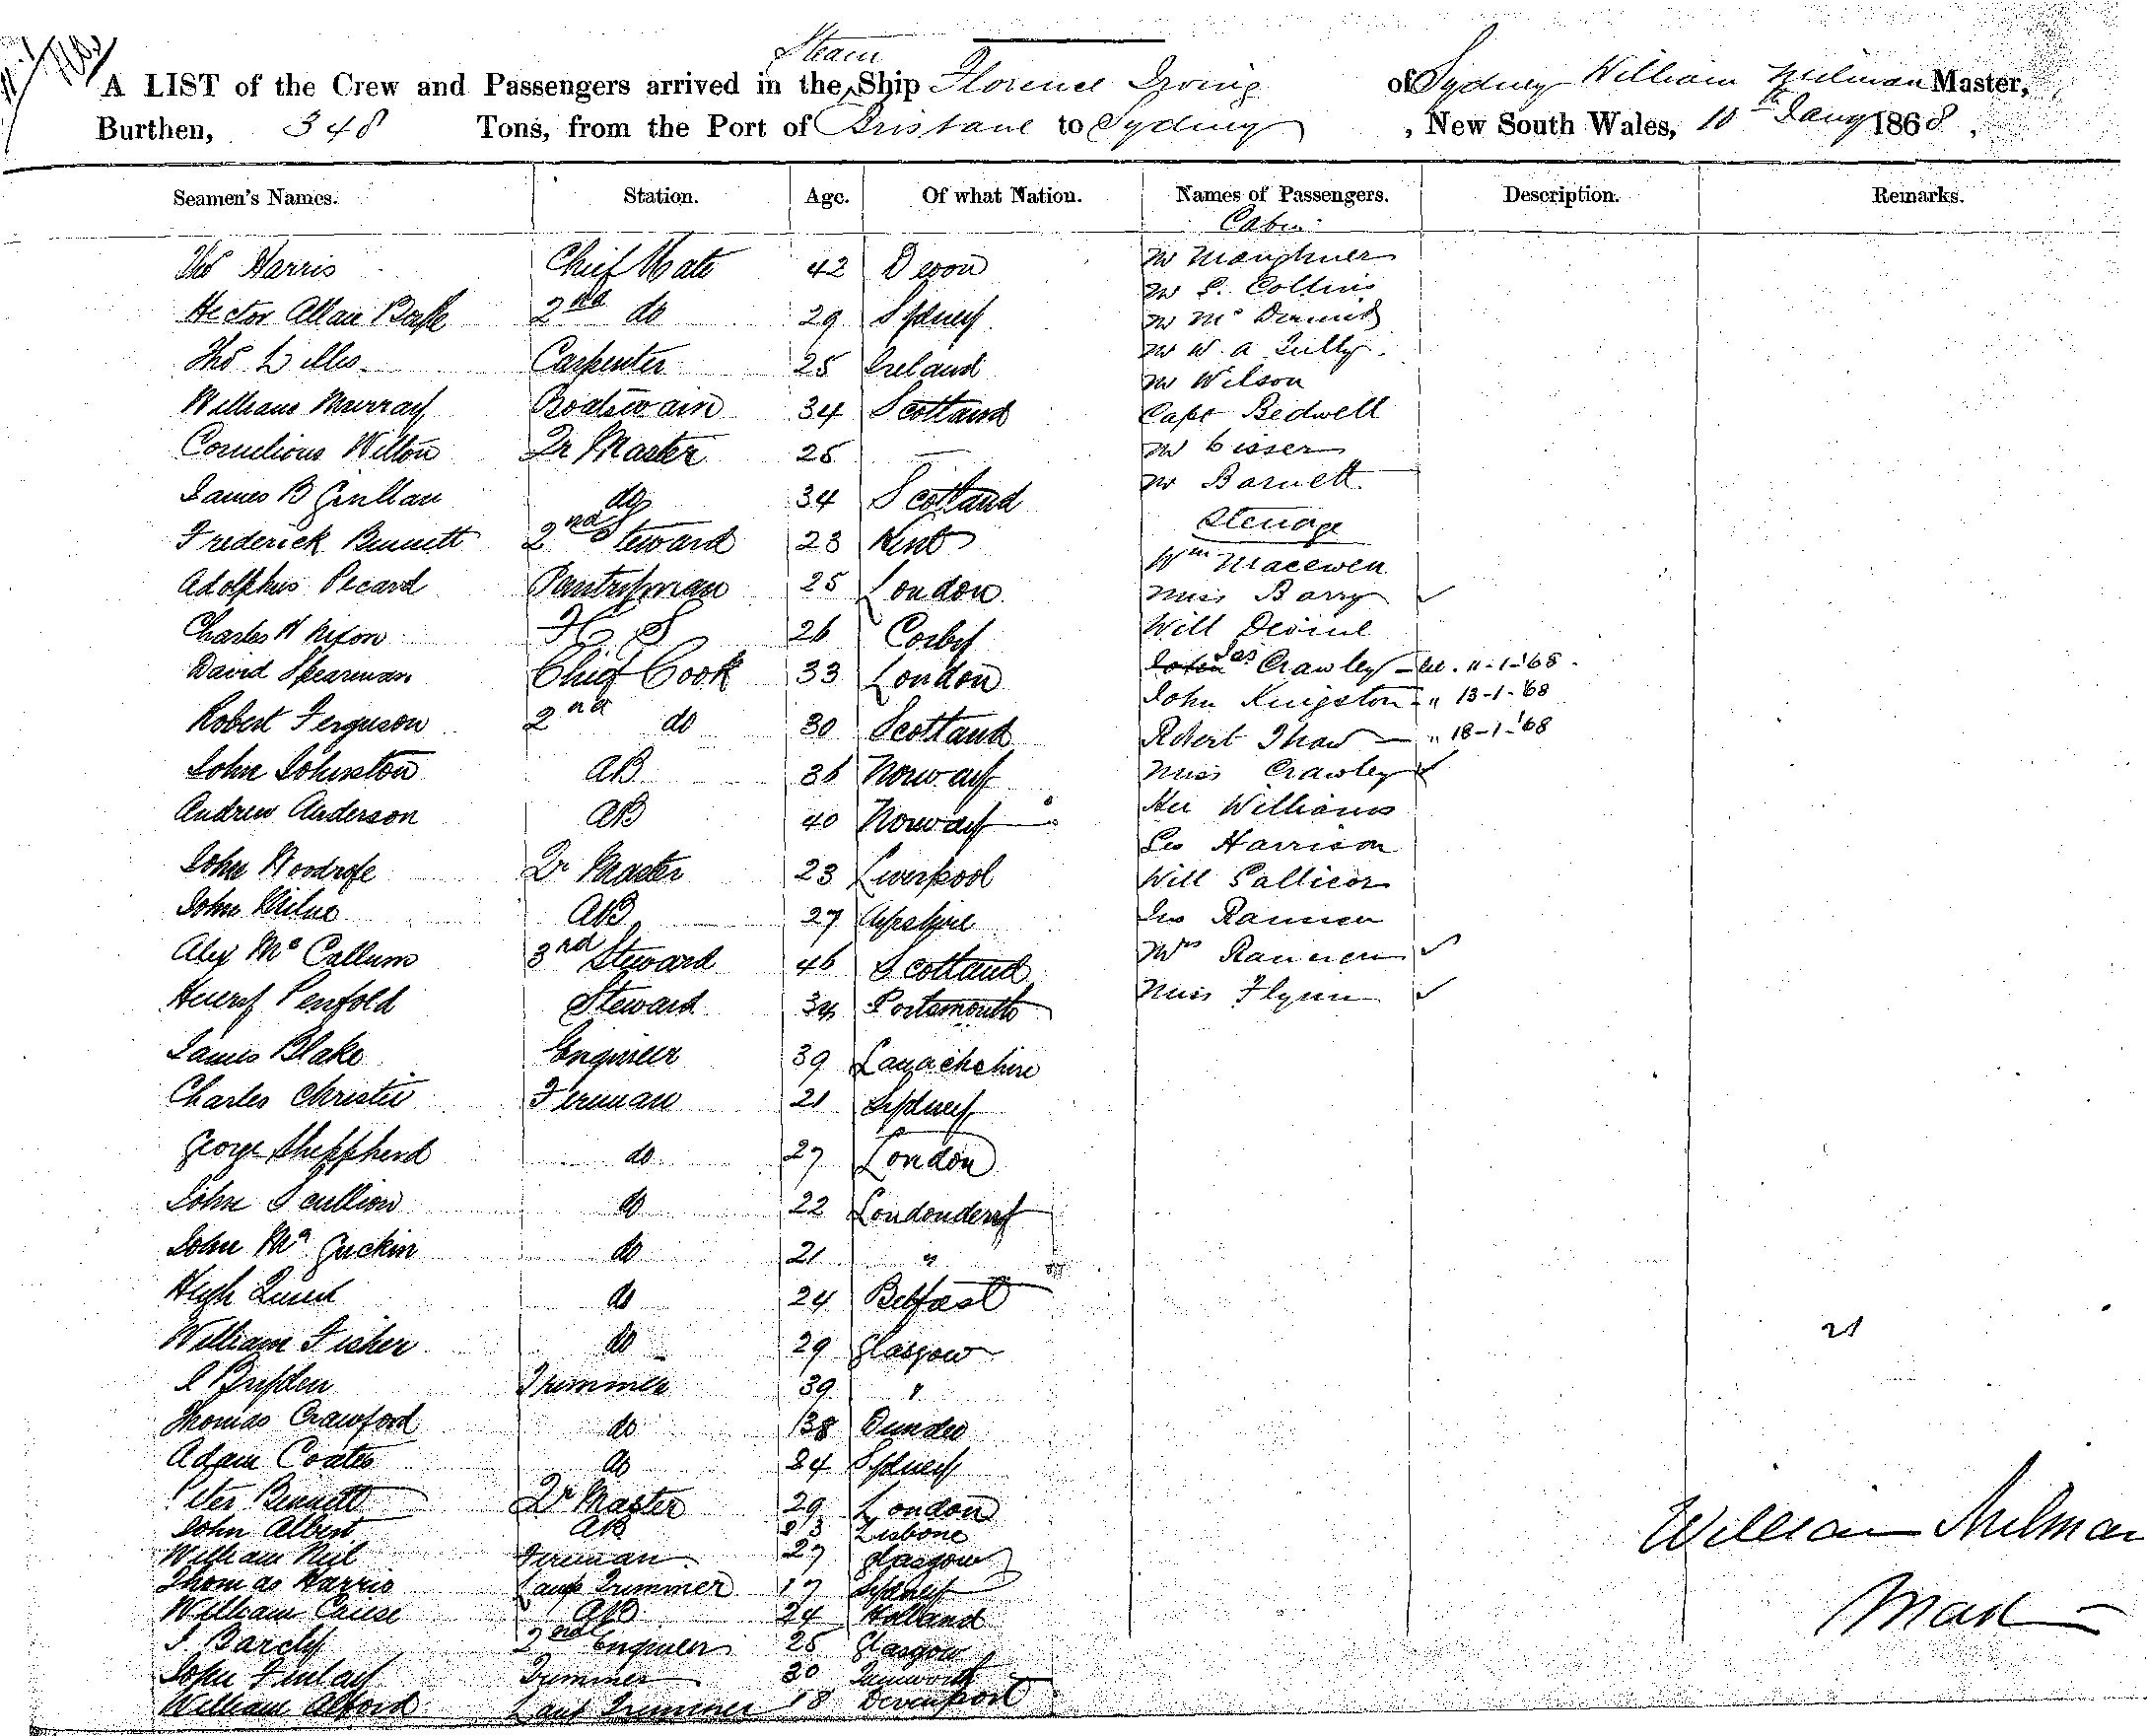 Steam
A LIST of the Crew and Passengers arrived in the Ship Florence Irving of Sydney William Milman Master,
Burthen, 348 Tons, from the Port of Brisbane to Sydney, New South Wales, 10th Jany 1868,
Seamen's Names. Station. Age. Of what Nation. Names of Passengers. Description. Remarks.
Cabin
Thos Harris Chief Mate 42 Devon Mr
Mr S. Collins
Hector Allan 2nd do 29 Sydney Mr McDermid
Thos Carpenter 25 Ireland Mr W. A Tully
Mr Wilson
William Murray Boatswain 34 Scotland Capt Bedwell
Cornelious Wilton Qr Master 25 — Mr
Mr Barnett
James B Gillan do 34 Scotland
Steerage
Frederick Bennett 2nd Steward 23 Kent Wm Macewen
Adolphus Pecard Pantryman 25 London Miss Barry
Charles H Nixon F C S 26 Corby Will
David Spearman Chief Cook 33 London John Jas Crawley 11-1-'68
John Kingston " 13-1-'68
Robert Ferguson 2nd do 30 Scotland Robert Thaw " 18-1-'68
John Johnston AB 36 Norway Miss Crawley
Andrew Anderson AB 40 Norway Williams
Geo Harrison
John Woodrofe Qr Master 23 Liverpool Will
John Milne AB 27 Ayrshire Jno Rannen
Alex McCallum 3rd Steward 46 Scotland Mrs Rannen
Henry Penfold Steward 34 Portsmouth Miss Flynn
James Blake Engineer 39 Lanackshire
Charles Christie Fireman 21 Sydney
George Sheppherd do 27 London
John Scullion do 22 Londonderry
John McGuckin do 21 "
Hugh Quinn do 24 Belfast
William Fisher do 29 Glasgow
21
J Bryden Trimmer 39 "
Thomas Crawford do 38 Dundee
Adam Coates do 24 Sydney
Peter Bennett Qr Master 29 London
William Milman
John Albert AB 23 Lisbone
William Neil Fireman 27 Glasgow
Thomas Harris Lamp Trimmer 17 Sydney
William Cause AB 24 Holland
Mast
J Barcly 2nd Engineer 25 Glasgow
John Finlay Trimmer 30 Tamworth
William Alford Lamp Trimmer 18 Devenport